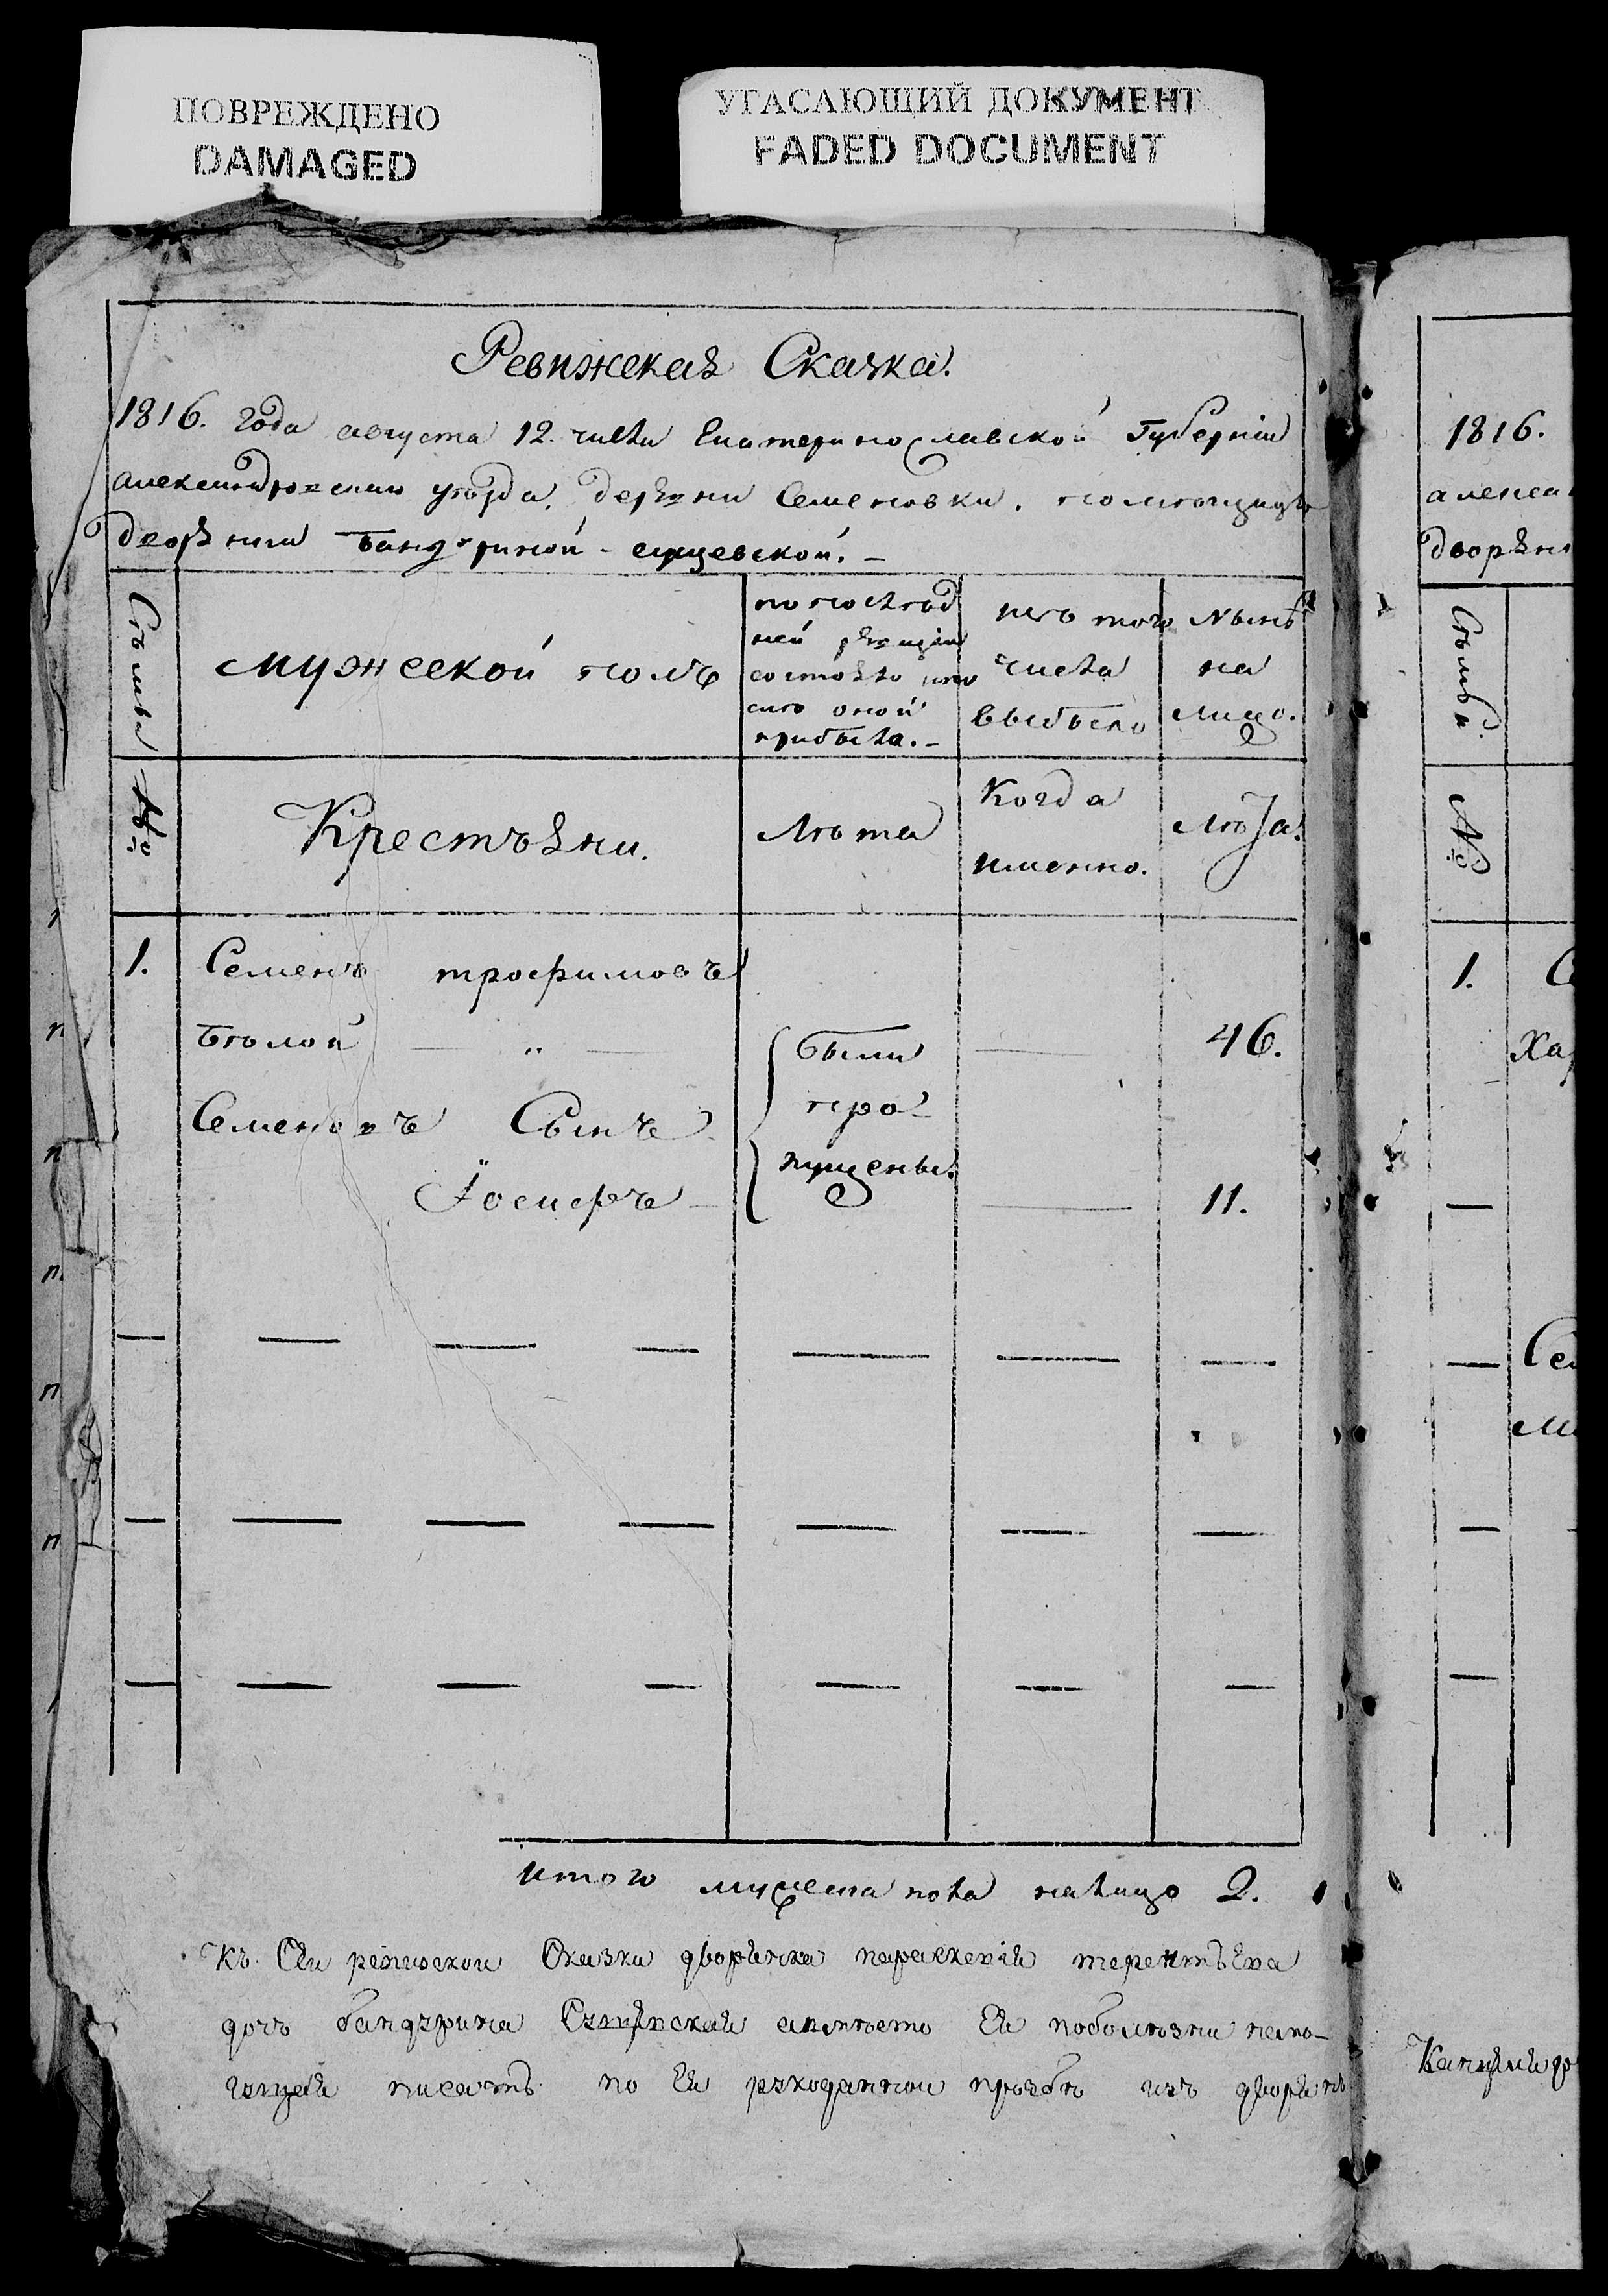 ПОВРЕЖДЕНО
DAMAGED
УГАСАЮЩИЙ ДОКУМЕНТ
FADED DOCUMENT
Ревижская Сказка.
1816. года августа 12. числа Екатеринославской Губернiи
александровскаго уѣзда, деревни Семеновки, помѣщицы
дворянки Бандуриной - сущевской. –
Сѣмьи
мужеской полъ
по послѣд
ней ревицiи
состояло и по
слѣ оной
прибыла. –
изъ того
числа
выбыло
Нынѣ
на
лицо.
№
Крестьяни.
Лѣта
Когда
именно.
Лѣта.
1. Семенъ трофимовъ
бѣлой — " — были — 46.
про
Семеновъ Сынъ
пущены.
Iосифъ — 11.
итого мужеска пола налицо 2.
Къ Сей ревижской Сказки дворянка параскевiя терентьева
дочь бандурина а вмѣсто Ей поболѣзни немо-
гущей писать по Ей рукоданной прозбѣ изъ дворянъ
1816.
алекса
дворян
Сѣмьи
№
1. С
Ха
Сем
Ми